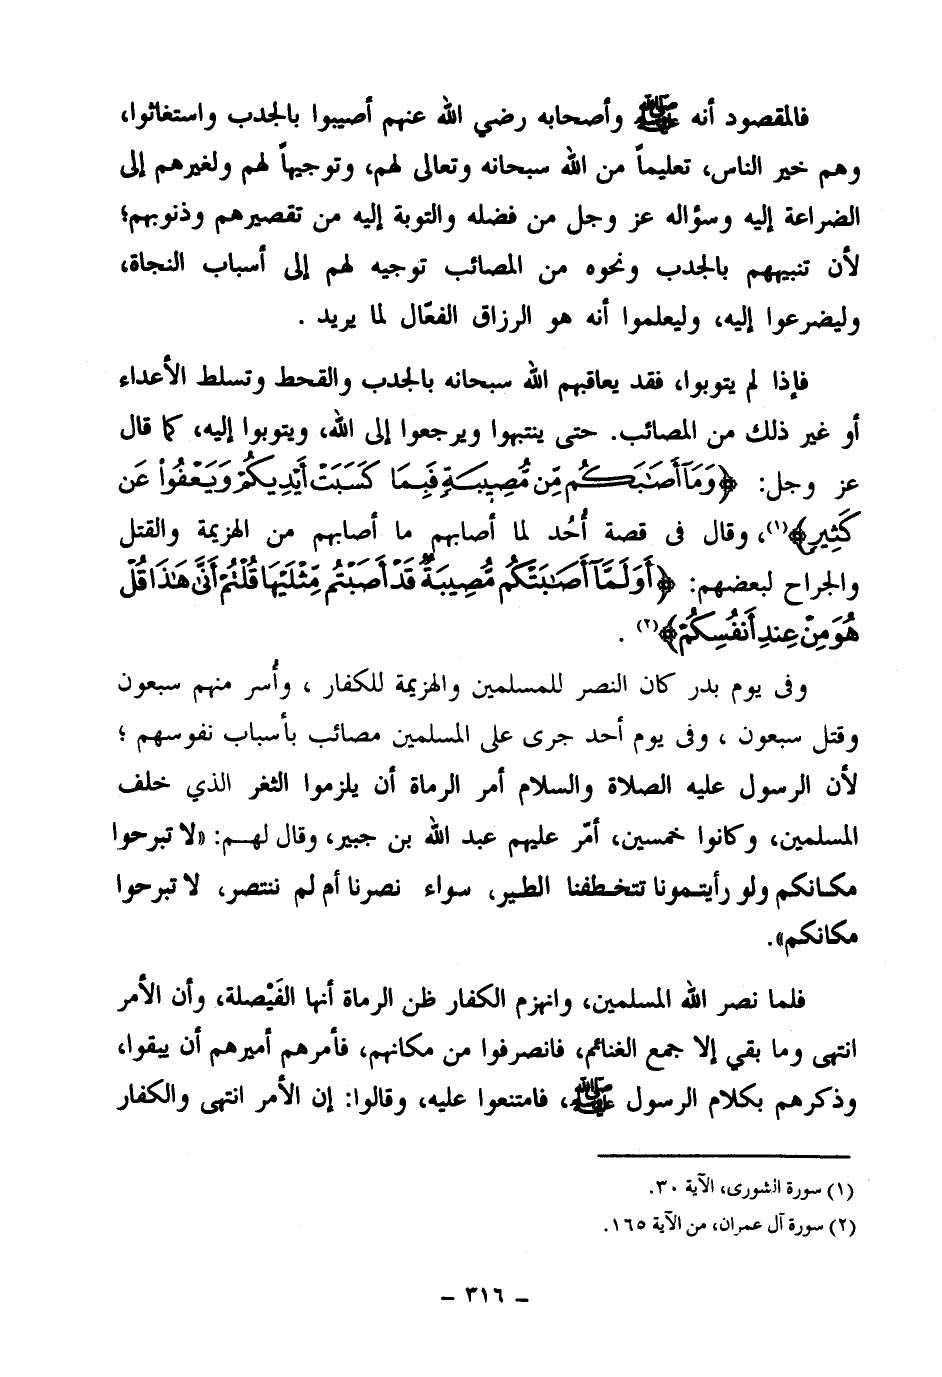 فالمقصود أنه ﷺ وأصحابه رضي الله عنهم أصيبوا بالجدب واستغاثوا،
وهم خير الناس، تعليماً من الله سبحانه وتعالى لهم، وتوجيهاً لهم ولغيرهم إلى
الضراعة إليه وسؤاله عز وجل من فضله والتوبة إليه من تقصيرهم وذنوبهم؛
لأن تنبيههم بالجدب ونحوه من المصائب توجيه لهم إلى أسباب النجاة،
وليضرعوا إليه، وليعلموا أنه هو الرزاق الفعّال لما يريد .
فإذا لم يتوبوا، فقد يعاقبهم الله سبحانه بالجدب والقحط وتسلط الأعداء
أو غير ذلك من المصائب. حتى ينتبهوا ويرجعوا إلى الله، ويتوبوا إليه، كما قال
عز وجل: ﴿وَمَآ أَصَٰبَكُم مِّن مُّصِيبَةٍ فَبِمَا كَسَبَتْ أَيْدِيكُمْ وَيَعْفُوا۟ عَن
كَثِيرٍ﴾(١)، وقال فى قصة أُحُد لما أصابهم ما أصابهم من الهزيمة والقتل
والجراح لبعضهم: ﴿أَوَلَمَّآ أَصَٰبَتْكُم مُّصِيبَةٌ قَدْ أَصَبْتُم مِّثْلَيْهَا قُلْتُمْ أَنَّىٰ هَٰذَا قُلْ
هُوَ مِنْ عِندِ أَنفُسِكُمْ﴾(٢) .
وفى يوم بدر كان النصر للمسلمين والهزيمة للكفار ، وأُسر منهم سبعون
وقتل سبعون ، وفى يوم أحد جرى على المسلمين مصائب بأسباب نفوسهم ؛
لأن الرسول عليه الصلاة والسلام أمر الرماة أن يلزموا الثغر الذي خلف
المسلمين، وكانوا خمسين، أمّر عليهم عبد الله بن جبير، وقال لهم: «لا تبرحوا
مكانكم ولو رأيتمونا تتخطفنا الطير، سواء نصرنا أم لم ننتصر، لا تبرحوا
مكانكم».
فلما نصر الله المسلمين، وانهزم الكفار ظن الرماة أنها الفَيْصلة، وأن الأمر
انتهى وما بقي إلا جمع الغنائم، فانصرفوا من مكانهم، فأمرهم أميرهم أن يبقوا،
وذكرهم بكلام الرسول ﷺ، فامتنعوا عليه، وقالوا: إن الأمر انتهى والكفار
(١) سورة الشورى، الآية ٣٠.
(٢) سورة آل عمران، من الآية ١٦٥.
– ٣١٦ –